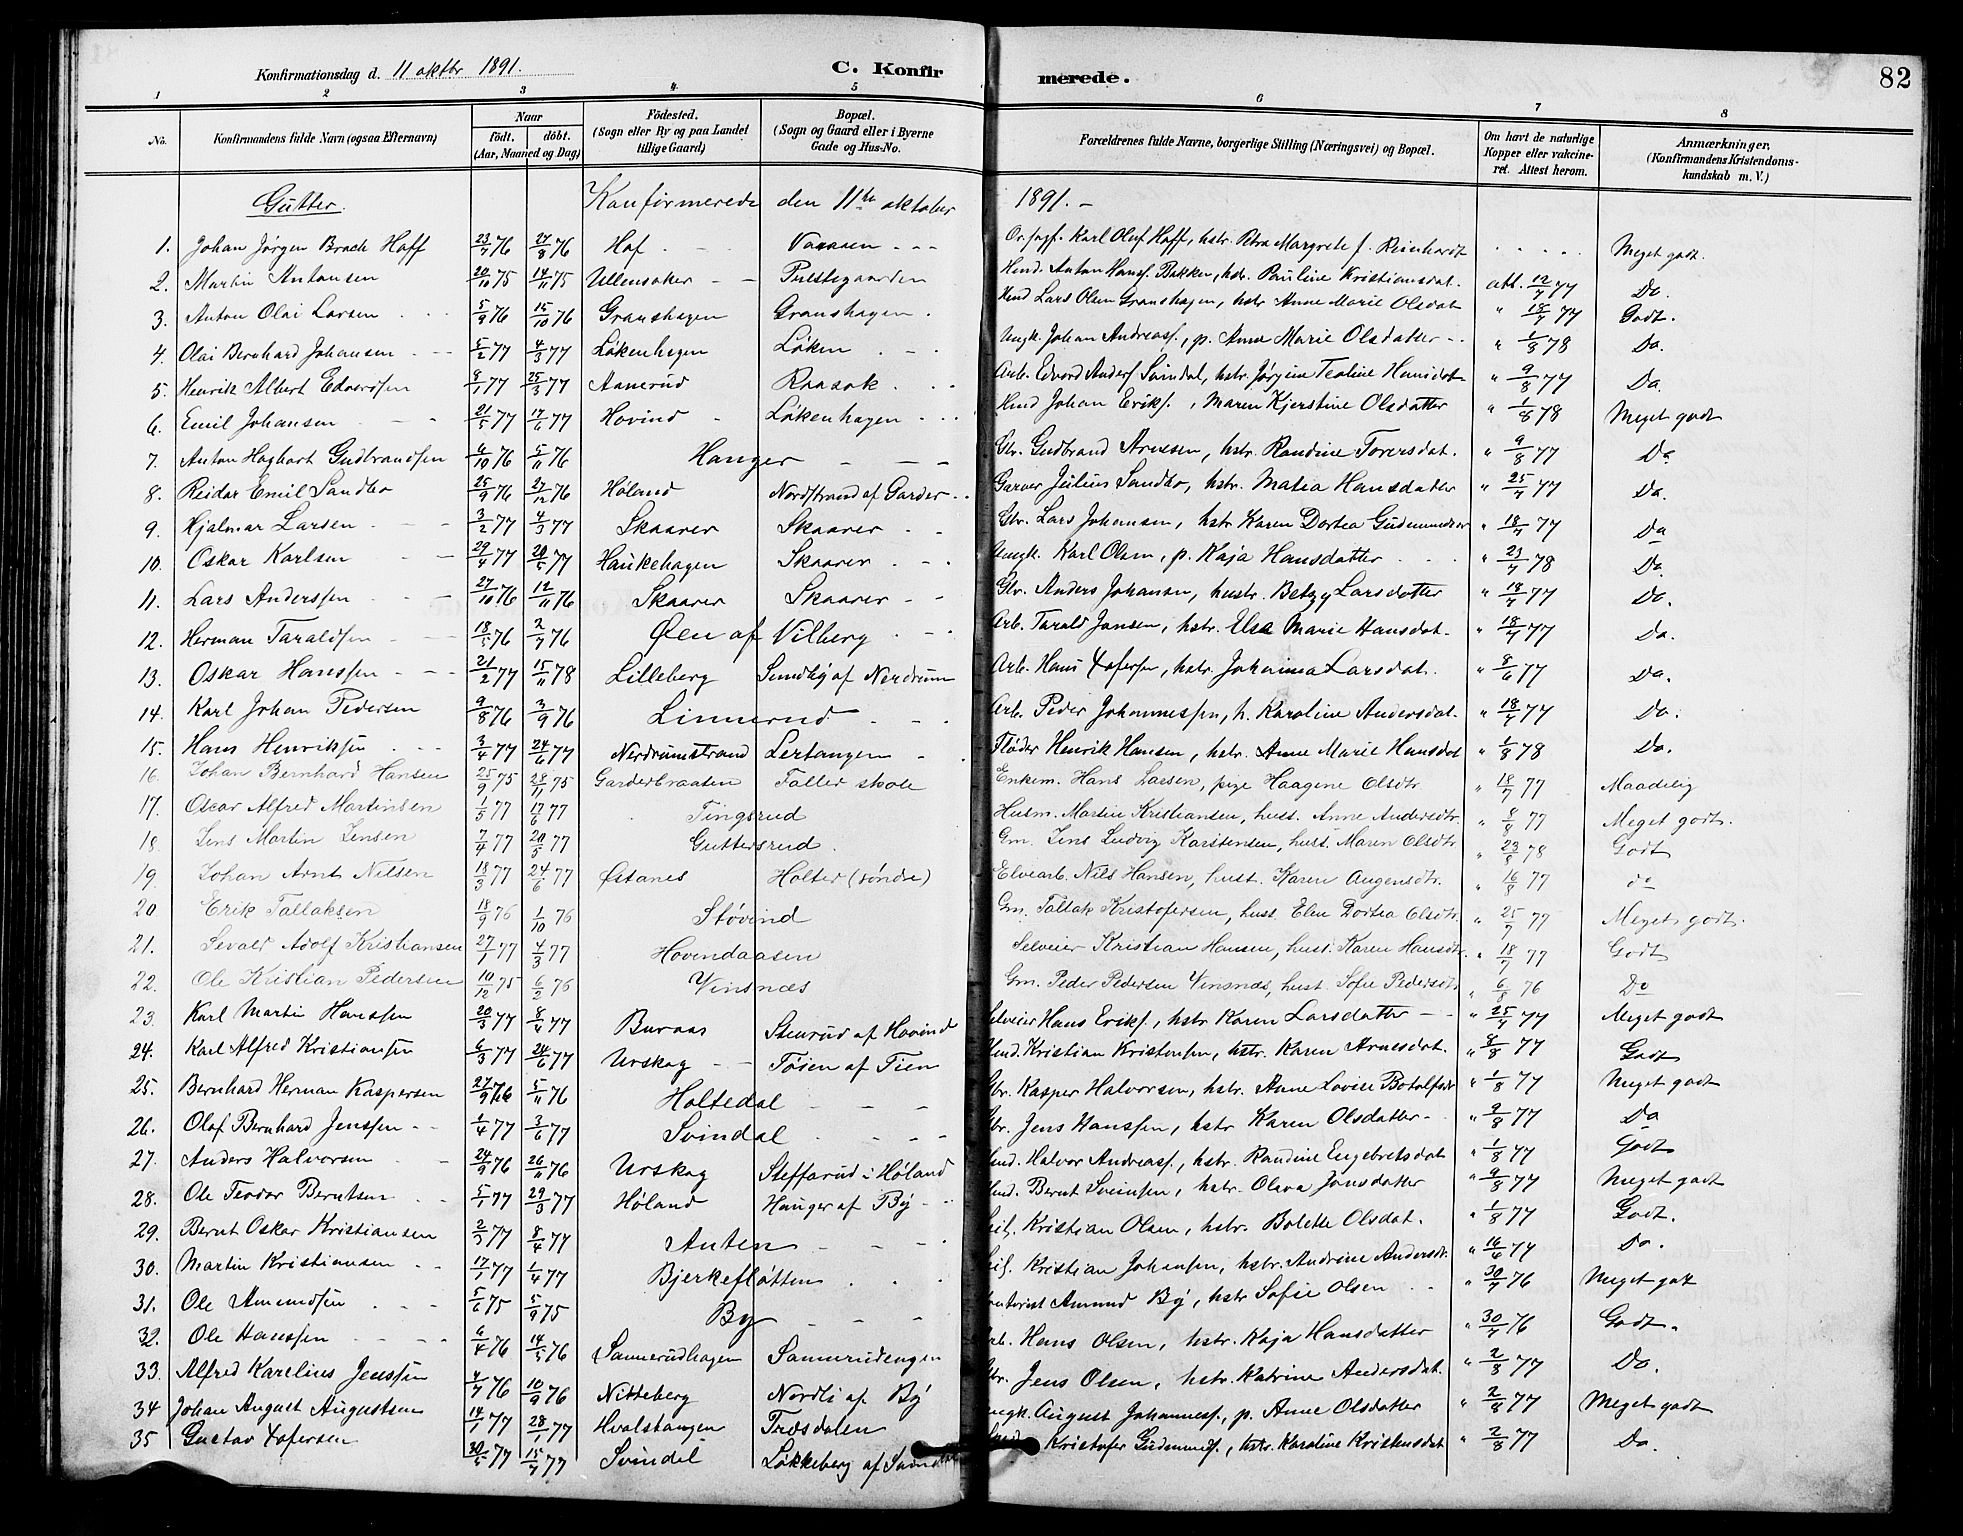 Konfirmationsdag d. 11 oktbr 1891.
C. Konfirmerede.
82
1 2 3 4 5 6 7 8
No. Konfirmandens fulde Navn (ogsaa Efternavn) Naar født. døbt. (Aar, Maaned og Dag) Födested. (Sogn eller By og paa Landet tillige Gaard) Bopæl. (Sogn og Gaard eller i Byerne Gade og Hus-No. Forældrenes fulde Navne, borgerlige Stilling (Næringsvei) og Bopæl. Om havt de naturlige Kopper eller vakcineret. Attest herom. Anmærkninger. (Konfirmandens Kristendomskundskab m. V.)
Gutter. Konfirmerede den 11te oktober 1891. –
1. Johan Jørgen Brach Hoff 23/7 76 27/8 76 Hof Karl Oluf Hoff, hstr. Petra Margrete f. Reinhardt Meget godt.
2. Martin Antonsen 20/10 75 14/11 75 Ullensaker Prestegaarden Hmd. Anton Hansf. Bakken, hstr. Pauline Kristiansdat. att. 12/7 77 Do.
3. Anton Olai Larsen 5/9 76 15/10 76 Granshagen Granshagen. Hmd Lars Olsen Granshagen, hstr Anne Marie Olsdat " 18/7 77 Godt.
4. Olai Bernhard Johansen 5/2 77 4/3 77 Løkenhagen Løken Ungk. Johan Andreasf., p. Anne Marie Olsdatter " 1/8 78 Do.
5. Henrik Albert Edvardsen 8/1 77 25/3 77 Aanerud Raasok Arb. Edvard Andersf Svindal, hstr. Jørgine Teoline Hansdat " 9/8 77 Do.
6. Emil Johansen 21/5 77 17/6 77 Hovind Løkenhagen Hmd Johan Eriks., Maren Kjerstine Olsdatter " 1/8 78 Meget godt
7. Anton Hagbart Gudbrandsen 6/10 76 5/11 76 Hanger Gbr. Gudbrand Arnesen, hstr. Randine Toversdat. " 9/8 77 Do
8. Reidar Emil Sandbo 25/9 76 27/12 76 Høland Nordstrand af Garder Garver Julius Sandbo, hstr. Matia Hansdatter " 25/7 77 Do.
9. Hjalmar Larsen 3/2 77 4/3 77 Skaarer Skaarer Gbr. Lars Johansen, hstr Karen Dortea " 18/7 77 Do
10. Oskar Karlsen 29/4 77 20/5 77 Haukehagen Skaarer Ungk. Karl Olsen, p. Kaja Hansdatter " 23/7 78 Do.
11. Lars Anderssen 27/10 76 12/11 76 Skaarer Skaarer Gbr. Anders Johansen, hustr. Betzy Larsdatter " 18/7 77 Do.
12. Herman Taraldsen 18/5 76 2/7 76 Øen af Vilberg Arb. Tarald Jansen, hstr. Else Marie Hansdat. " 18/7 77 Do.
13. Oskar Hanssen 21/2 77 15/11 78 Lilleberg Sundby af Nerdrum Arb. Hans Xofersen, hstr. Johanna Larsdat. " 8/6 77 Do.
14. Karl Johan Pedersen 9/8 76 3/9 76 Linnerud Arb. Peder Johannessen, h. Karoline Andersdat. " 18/7 77 Do.
15. Hans Henriksen 3/4 77 24/6 77 Nerdrumstrand Lertangen Fløder Henrik Hansen, hstr. Anne Marie Hansdat " 1/8 78 Do.
16. Johan Bernhard Hansen 25/9 75 28/11 75 Garderbraaten Faller skole Enkem. Hans Larsen, pige Haagene Olsdtr " 18/7 77 Maadelig
17. Oscar Alfred Martinsen 1/5 77 17/6 77 Tingsrud Husm. Martin Kristiansen, hust. Anne Andersdtr. " 8/8 77 Meget godt.
18 Jens Martin Jensen 7/4 77 20/5 77 Guttersrud. Gm. Jens Ludvig Karstensen, hust. Maren Olsdtr " 23/8 78 Godt
19. Johan Arnt Nilsen 18/3 77 24/6 77 Østanes Holter (søndre) Elvearb. Nils Hansen, hust. Karen Augensdtr. " 16/8 77 do
20 Erik Tallaksen 18/9 76 1/10 76 Støvind Gm. Tallak Kristofersen, hust. Elen Dortea Olsdtr. " 25/7 77 Meget godt.
21. Sevald Adolf Kristiansen 27/1 77 4/3 77 Hovindaasen Selveier Kristian Hansen, hust. Karen Hansdtr. " 18/7 77 Godt
22. Ole Kristian Pedersen 10/12 75 6/2 76 Vinsnæs Gm. Peder Pedersen Vinsnæs, hust. Sofie Pedersdtr " 6/8 76 Do
23. Karl Martin Hanssen 20/3 77 8/4 77 Buraas Stenrud af Hovind Selveier Hans Eriks., hstr Karen Larsdatter " 25/7 77 Meget godt
24. Karl Alfred Kristiansen 6/3 77 24/6 77 Urskog Tøien af Tien Hmd. Kristian Kristensen, hstr. Karen Arnesdat. " 8/8 77 Godt
25. Bernhard Herman Kaspersen 27/9 76 5/11 76 Holtedal Gbr. Kasper Halvorsen, hstr. Anne Lovise Botolfsdt " 1/8 77 Meget godt
26. Olaf Bernhard Jenssen 1/4 77 3/6 77 Svindal Gbr. Jens Hanssen, hstr Karen Olsdatter " 9/8 77 Do
27. Anders Halvorsen 24/9 76 26/11 76 Urskog Steffarud i Høland Hmd. Halvor Andreasf., hstr. Randine Engebretsdat " 1/8 77 Godt
28. Ole Teodor Berntsen 5/1 77 29/3 77 Høland Hanger af By Hmd. Bernt Sveinsen, hstr. Olava Jonsdatter " 9/8 77 Meget godt
29. Bernt Oskar Kristiansen 2/3 77 8/4 77 Anten Kristian Olsen, hstr. Bolette Olsdat. " 1/8 77 Godt.
30. Martin Kristiansen 17/1 77 1/4 77 Bjerkefløtten Kristian Johansen, hstr. Andrine Andersdt. " 16/6 77 Do.
31. Ole Amundsen 5/6 75 5/9 75 By Amund By, hstr Sofie Olsen " 30/7 76 Meget godt
32. Ole Hanssen 6/4 76 14/5 76 Sannerudhagen Sannerudengen Arb. Hans Olsen, hstr. Kaja Hansdatter " 30/7 76 Godt.
33. Alfred Karelius Jenssen 4/7 76 10/9 76 Nitteberg Nordli af By Gbr. Jens Olsen, hstr. Katrine Andersdat. " 2/8 77 Do.
34 Johan August Augustsen 14/1 77 28/1 77 Hvalstangen Træsdalen Ungk. August Johannesf., p. Anne Olsdatter " 2/8 77 Meget godt
35 Gustav Xofersen 30/5 77 15/7 77 Svindal Løkkeberg af Svindal Kristofer Gudmunds., hstr. Karoline Kristensdat " 2/8 77 Do.